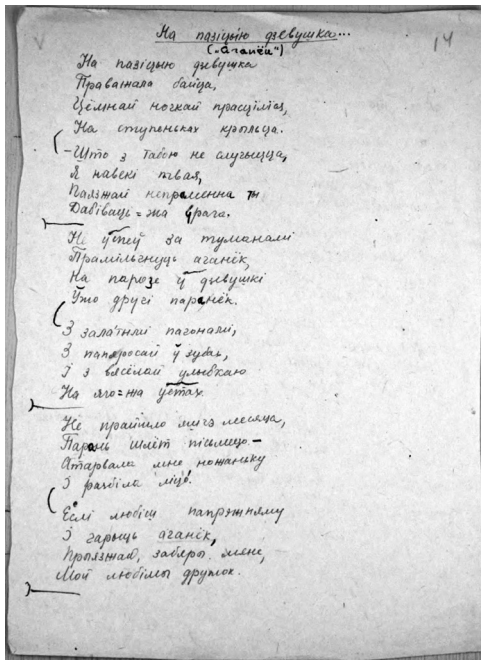 На пазіцыю дзевушка...
14
("Аганёк")
На пазіцыю дзевушка
Праважала байца,
Цёмнай ночкай прасціліся,
На ступеньках крыльца.
-Што з табою не случыцца,
Я навекі твая,
Паязжай непраменна ты
Дабіваць=жа врага.
Не ўспеў за туманамі
Прамільгнуць аганёк,
На парозе ў дзевушкі
Ужо другі паранёк.
З залатымі пагонамі,
З папяросай ў зубах,
І з вясёлай улыбкаю
На яго=жа устах.
Не прайшло месяца,
Парэнь шлёт пісьмцо.-
Атарвала мне ножаньку
І разбіла ліцо.
Еслі любіш папрэжняму
І гарыць аганёк,
Прыязжай, забяры мяне,
Мой любімы дружок.